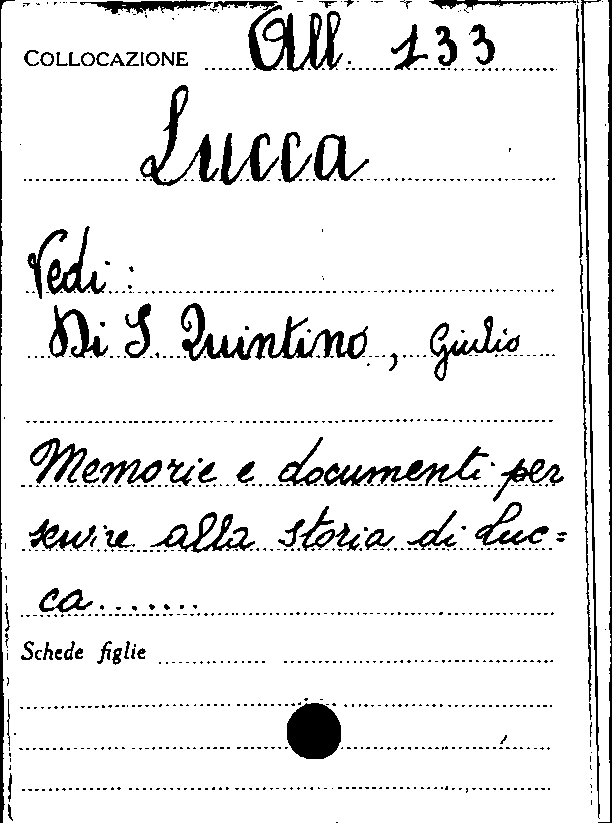 COLLOCAZIONE All. 133
Lucca
Vedi:
Di S. Quintino, Giulio
Memorie e documenti per
servire alla storia di Luc=
ca.......
Schede figlie